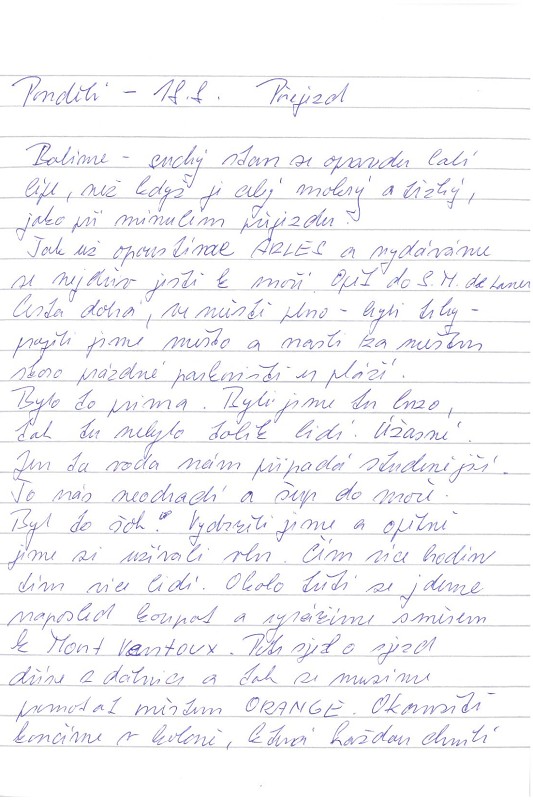 Pondělí - 18.8. Přejezd
Balíme - suchý stan se opravdu balí
lépe, než když je celý mokrý a těžký,
jako při minulém přejezdu.
Tak už opouštíme ARLES a vydáváme
se nejdřív ještě k moři. Opět do S. M. de la mer
Cesta dobrá, ve městě plno - byly trhy -
projeli jsme město a našli za městem
skoro prázdné parkoviště u pláží.
Bylo to prima. Byli jsme tu brzo,
tak tu nebylo tolik lidí. Úžasné.
Jen ta voda nám připadá studenější.
To nás neodradí a šup do moře.
Byl to šok. Vydrželi jsme a opětně
jsme si užívali vln. Čím více hodin
tím více lidí. Okolo třetí se jdeme
naposled koupat a vyrážíme směrem
k Mont Ventoux. sjet o sjezd
dříve z dálnice a tak se musíme
promotat městem ORANGE. Okamžitě
končíme v koloně, která každou chvíli